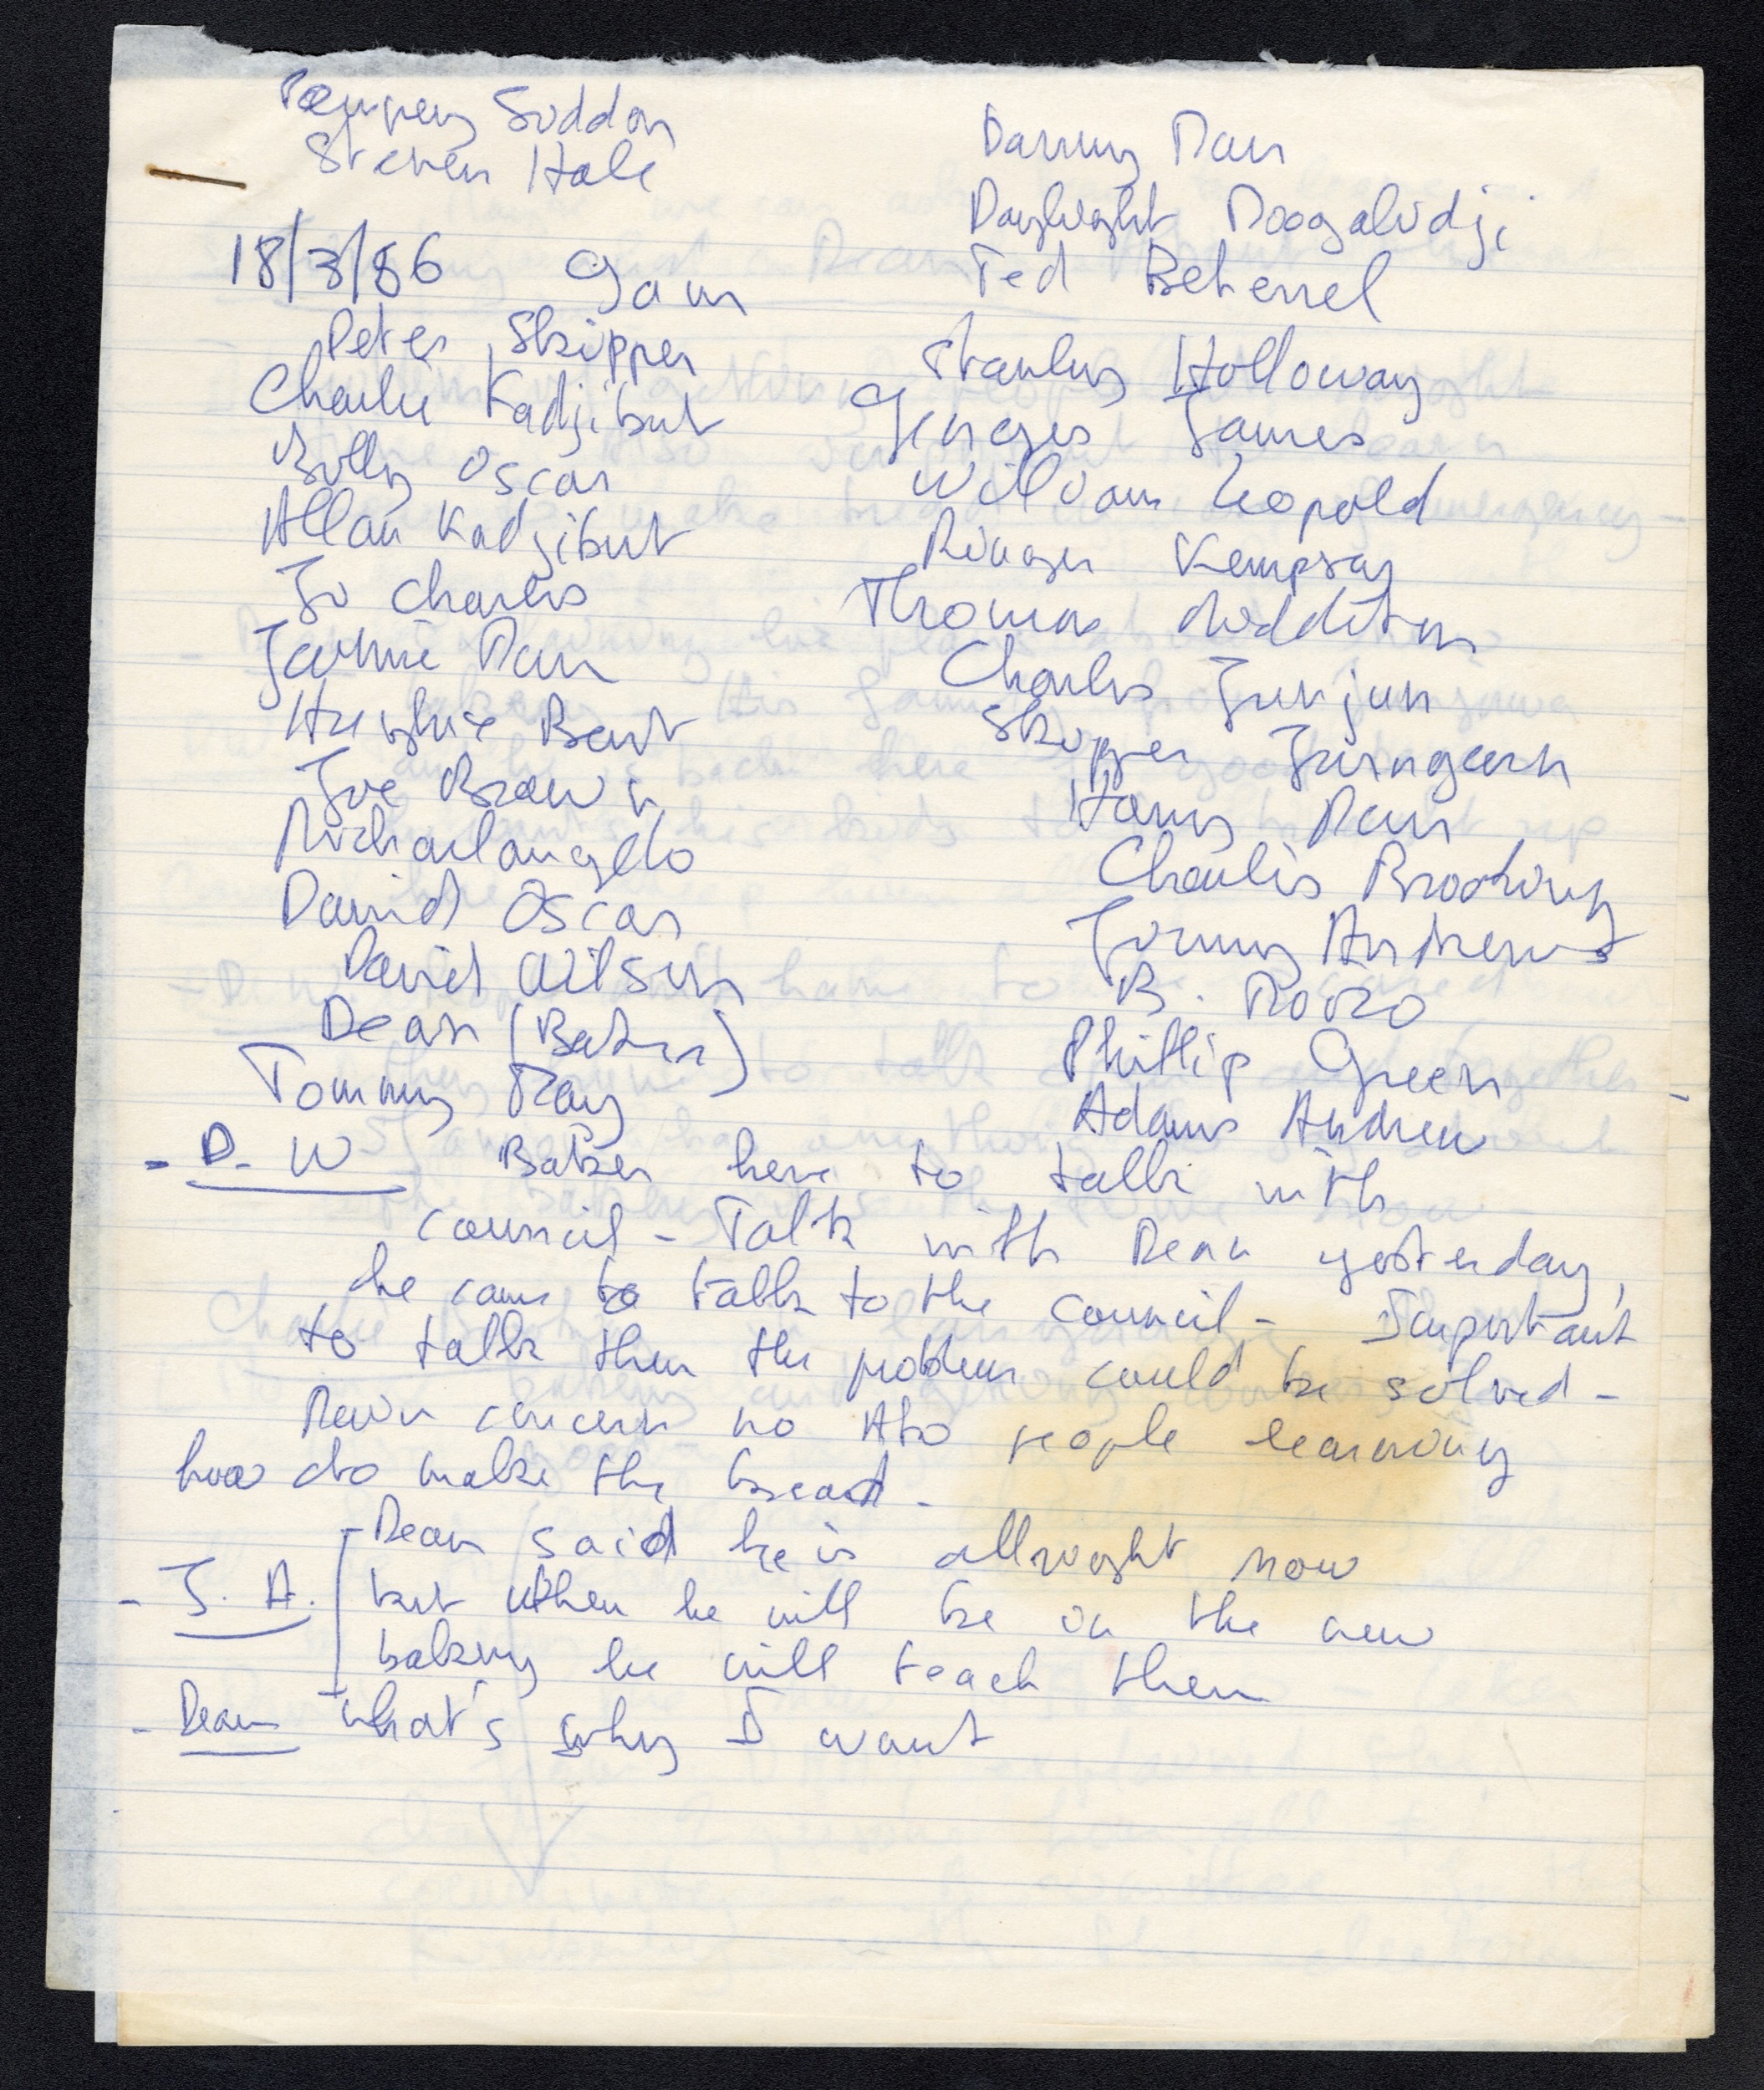 Pompey Siddon
Steven Hale
18/3/86 9 am
Peter Skipper
Charlie Kadjibut
Billy Oscar
Allan Kadjibut
Jo Charles
Jammie Man
Hughie Bent
Joe Brown
Michaelangelo
David Oscar
David Wilson
Dean (Baker)
Tommy May
Danny Man
Daylight Moogaludji
Ted Beherrel
Stanley Holloway
Georges James
William Leopold
Ringer Kempsay
Thomas Middleton
Charles Junjun
Skipper
Harry Man
Charlie Brooking
Jimmy Andrews
B. Mooro
Phillip Green
Adams Andrew
- D. W Baker here to talk with
council - Talk with Dean yesterday,
he came to talk to the council - Important
to talk then the problem could be solved -
Main concern no Abo people learning
how do make the bread -
- J. A. Dean said he is allright now
but when he will be in the new
bakery he will teach them
- Dean what's why I want